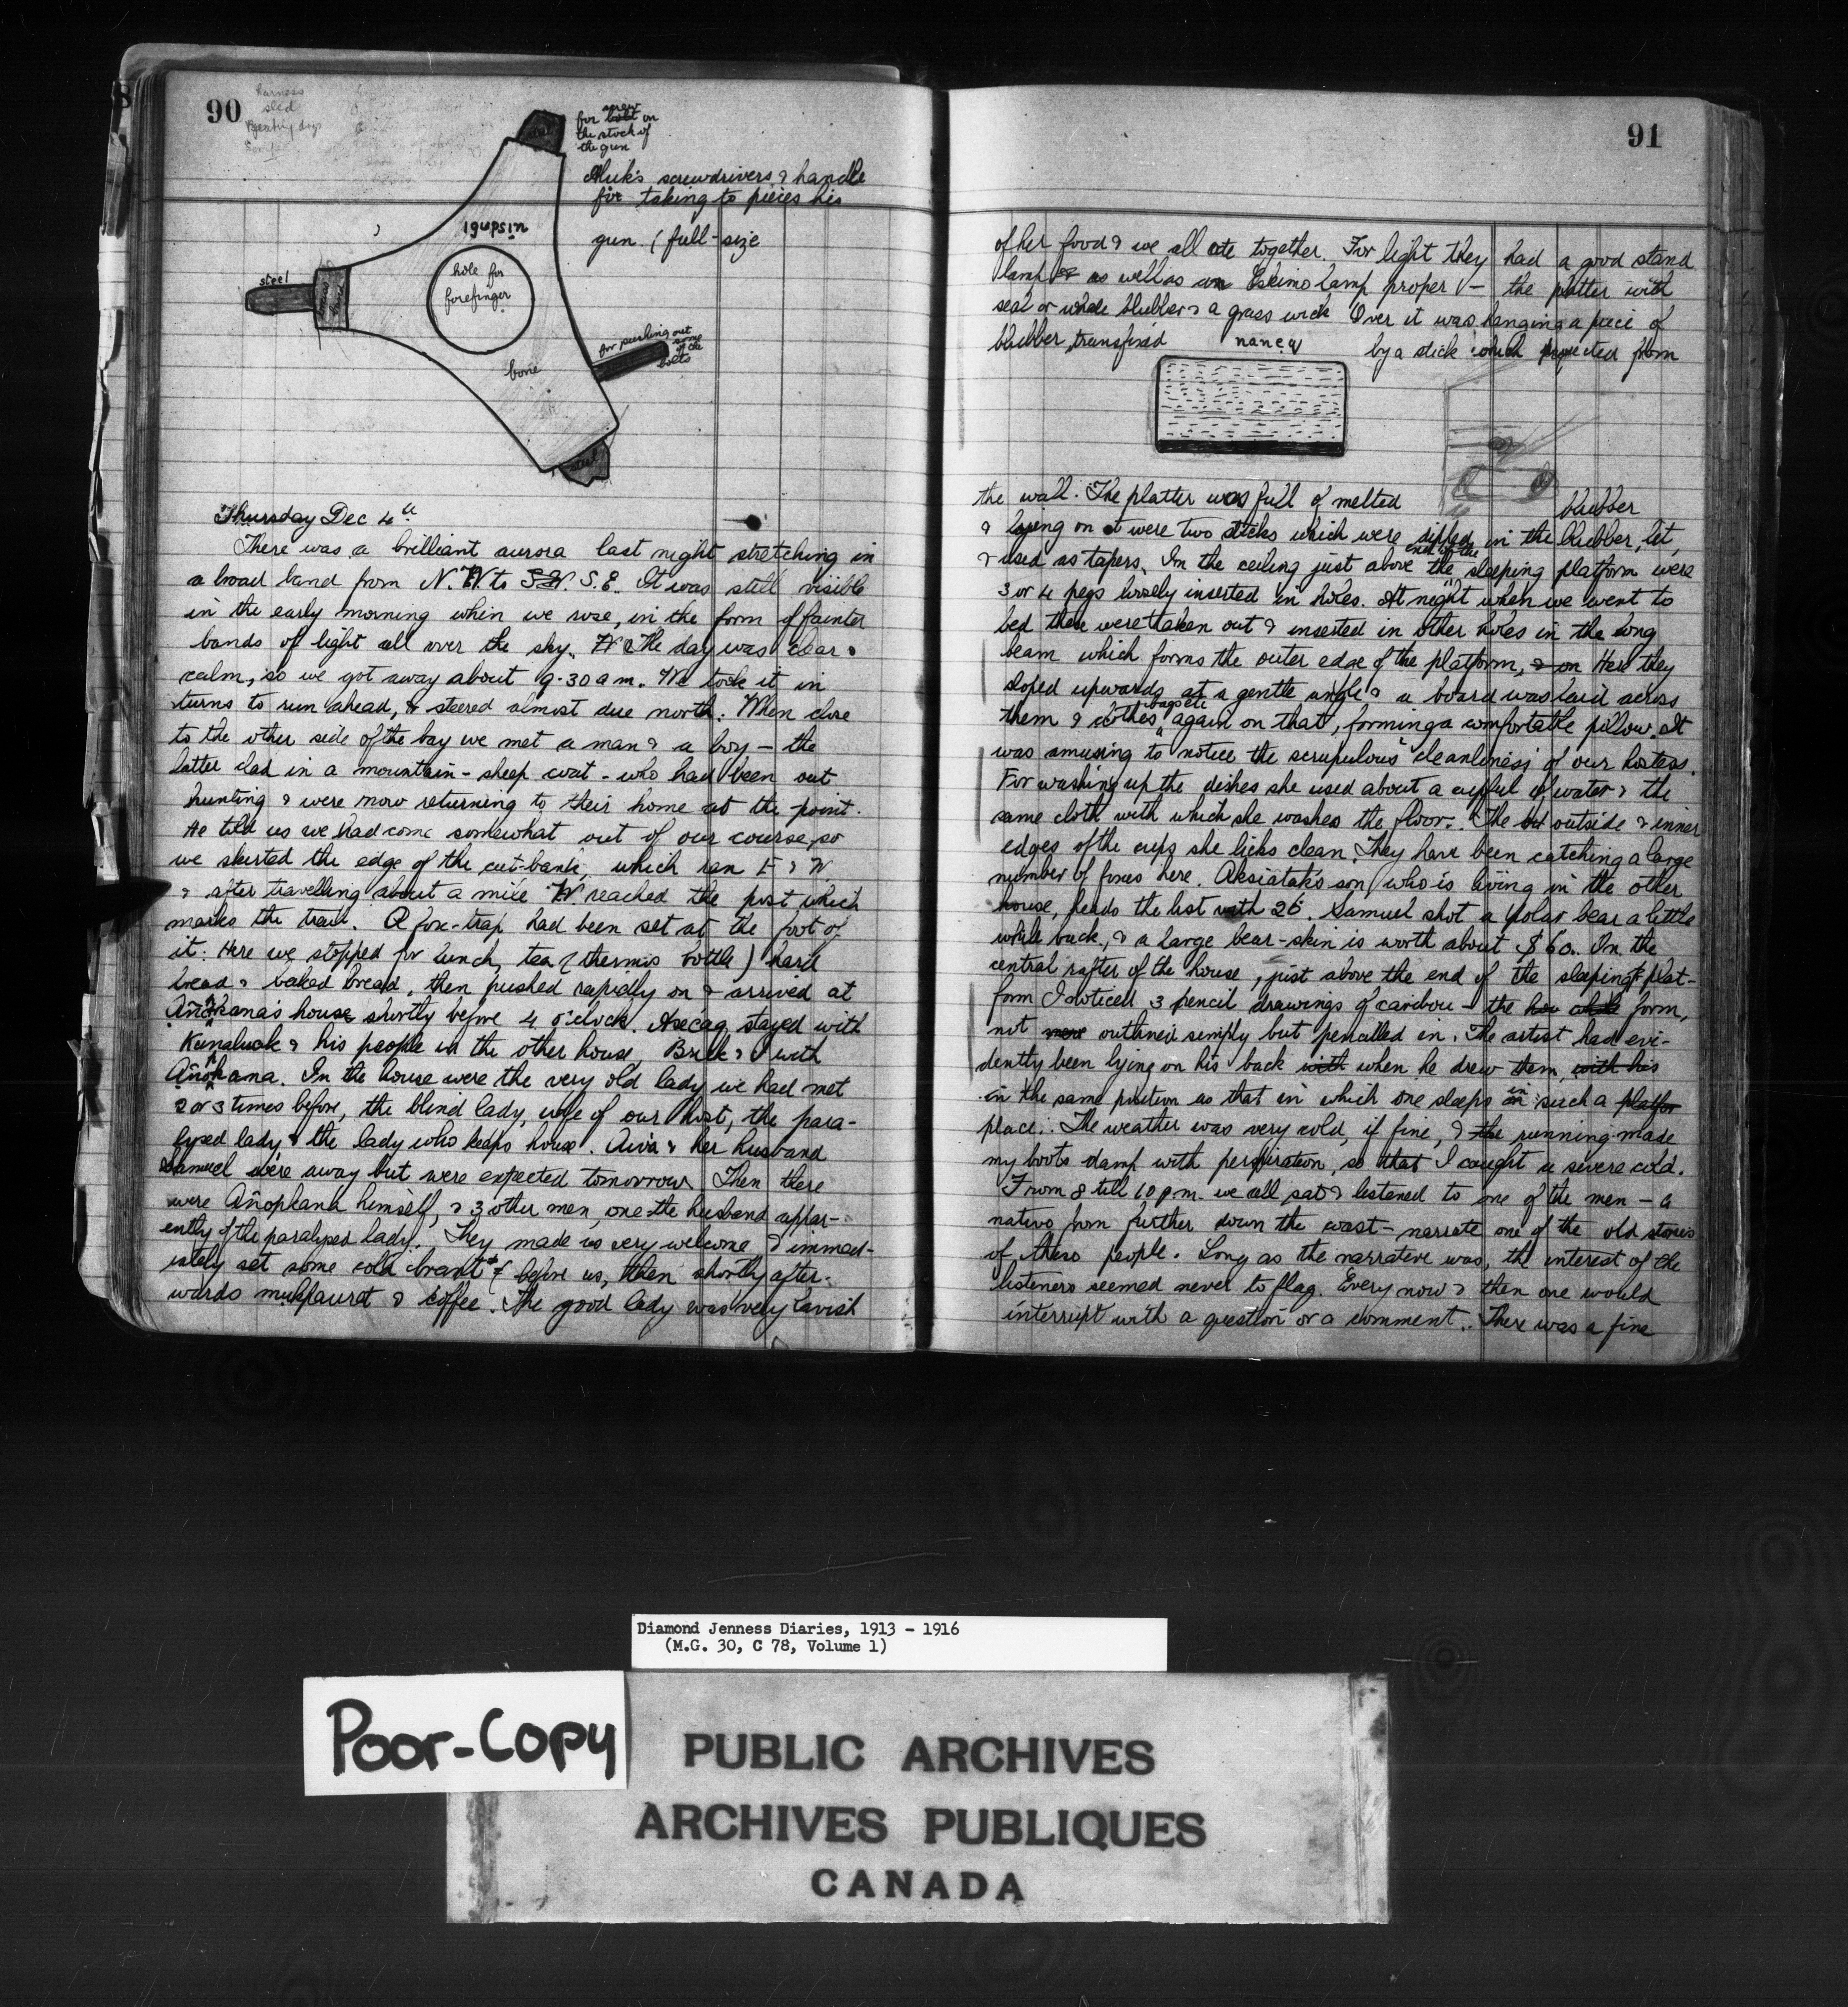 90
harness
sled
for screw on
the stock of
the gun
Aluk's screwdrivers & handle
for taking to pieces his
gun (full-size
igupsin
hole for
forefinger
steel
for pushing out
some
of the
bolts
bone
steel
Thursday Dec 4th
There was a brilliant aurora last night stretching in
a broad band from N.W to S.E. It was still visible
in the early morning when we rose, in the form of fainter
bands of light all over the sky. The day was clear &
calm, so we got away about 9.30 a m. We took it in
turns to run ahead, & steered almost due north. When close
to the other side of the bay we met a man & a boy — the
latter clad in a mountain-sheep coat - who had been out
hunting & were now returning to their home at the point.
He told us we had come somewhat out of our course, so
we skirted the edge of the cut-bank, which ran E & W.
& after travelling about a mile W reached the post which
marks the trail. A fox-trap had been set at the foot of
it. Here we stopped for lunch, tea (thermos bottle) hard
bread & baked bread, then pushed rapidly on & arrived at
house shortly before 4 o'clock. Asecaq stayed with
Kunaluak & his people in the other house, Brick & I with
In the house were the very old lady we had met
2 or 3 times before, the blind lady, wife of our host, the para-
lysed lady & the lady who keeps house. Aiva & her husband
Samuel were away but were expected tomorrow. Then there
were Añopkana himself, & 3 other men, one the husband appar-
ently of the paralysed lady. They made us very welcome & immed-
iately set some cold before us, then shortly after-
wards mukpaurat & coffee. The good lady was very lavish
91
of her food & we all ate together. For light they had a good stand
lamp as well as an Eskimo lamp proper — the platter with
seal or whale blubber & a grass wick. Over it was hanging a piece of
blubber transfixed by a stick which projected from
naneq
the wall. The platter was full of melted blubber
& lying on it were two sticks which were dipped in the blubber, lit,
& used as tapers. In the ceiling just above the end of the sleeping platform were
3 or 4 pegs loosely inserted in holes. At night when we went to
bed these were taken out & inserted in other holes in the long
beam which forms the outer edge of the platform, & on Here they
sloped upwards at a gentle angle & a board was laid across
them & clothes bags etc again on that, forming a comfortable pillow. It
was amusing to notice the scrupulous cleanliness of our hostess.
For washing up the dishes she used about a cupful of water & the
same cloth with which she washes the floor. The outside & inner
edges of the cups she licks clean. They have been catching a large
number of foxes here. Aksiatak's son, who is living in the other
house, heads the list with 26. Samuel shot a polar bear a little
while back, & a large bear-skin is worth about $60. On the
central rafter of the house, just above the end of the sleeping plat-
form I noticed 3 pencil drawings of caribou — the form,
not outlined simply but pencilled in. The artist had evi-
dently been lying on his back with when he drew them, with his
in the same position as that in which one sleeps in such a
place. The weather was very cold, if fine, & the running made
my boots damp with perspiration, so that I caught a severe cold.
From 8 till 10 p.m. we all sat & listened to one of the men — a
native from further down the coast — narrate one of the old stories
of these people. Long as the narrative was, the interest of the
listeners seemed never to flag. Every now & then one would
interrupt with a question or a comment. There was a fine
Diamond Jenness Diaries, 1913 - 1916
(M.G. 30, C 78, Volume 1)
Poor-Copy
PUBLIC ARCHIVES
ARCHIVES PUBLIQUES
CANADA